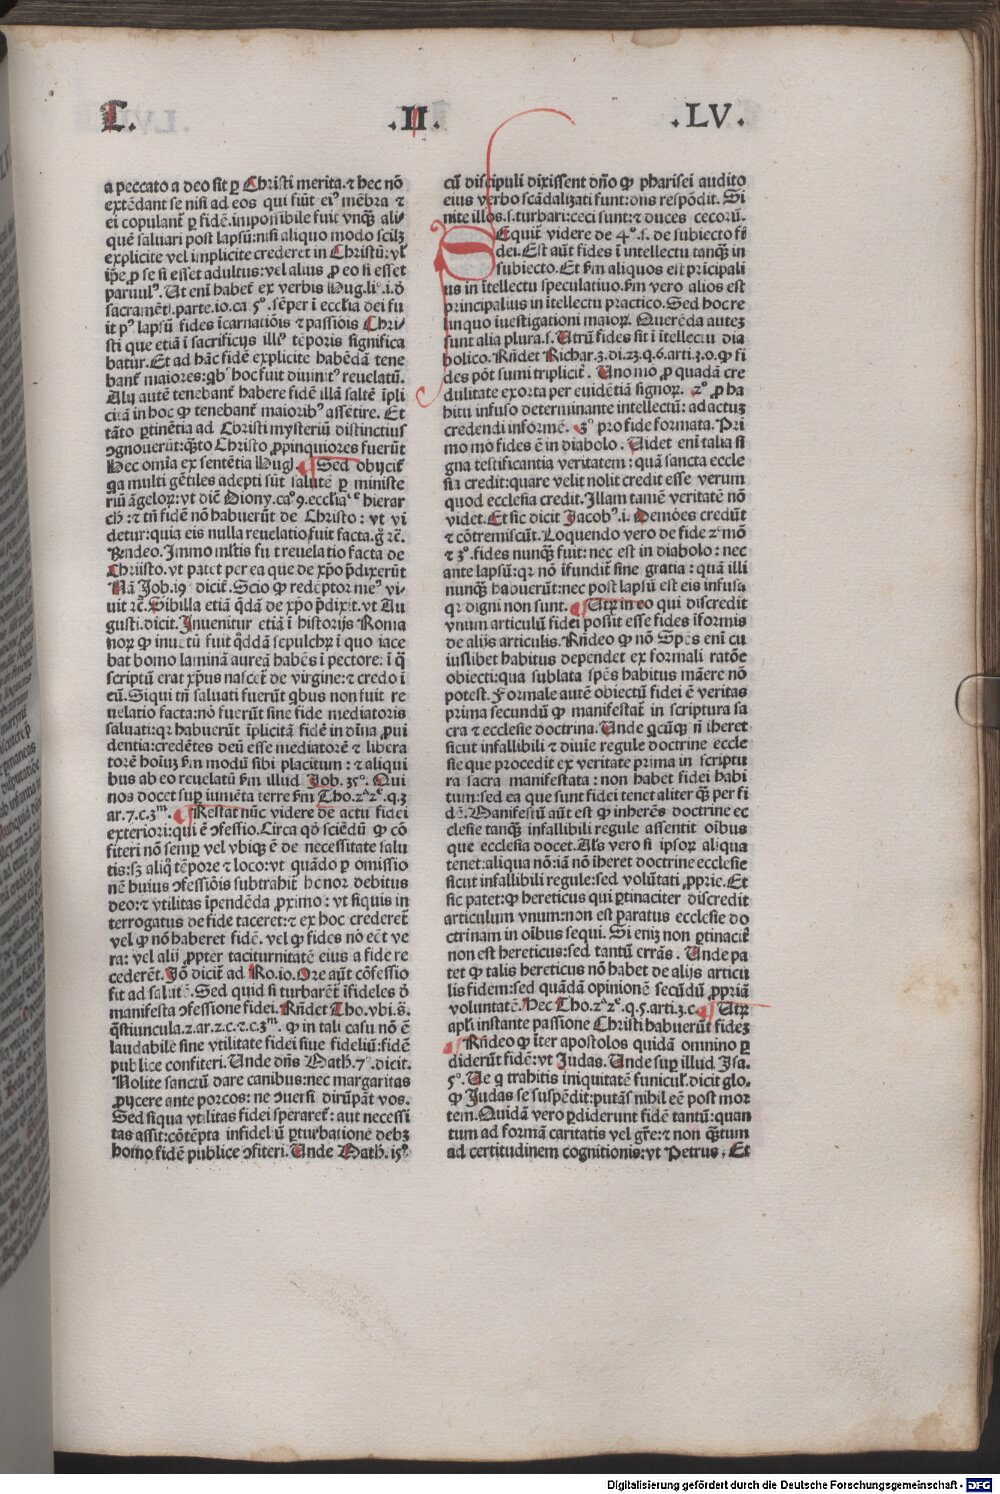 L. .II. .LV.
a peccato a deo sit ꝑ Christi merita.⁊ hec nō
extēdant se nisi ad eos qui fiūt eiꝰ mēbra ⁊
ei copulant᷑ ꝑ fidē.impossibile fuit vnqȝ ali⸗
quē saluari post lapsū:nisi aliquo modo scilȝ
explicite vel implicite crederet in Christū:vl̓
ip̄e ꝓ se si esset adultus:vel alius ꝓ eo si esset
paruulꝰ. Ut eni habet᷑ ex verbis Hug.li°.i.d̓
sacramēt̓.parte.io.ca 5°. sēper ī eccl̓ia dei fu
it pꝰ lapsū fides īcarnatiōis ⁊ passiōis Chri⸗
sti que etiā ī sacrificijs illiꝰ tēporis significa
batur. Et ad hāc fidē explicite habēdā tene
bant᷑ maiores:qb̓ hoc fuit diuinitꝰ reuelatū.
Alij autē tenebant᷑ habere fidē illā saltē īpli
citā in hoc ꝙ tenebant᷑ maioribꝰ assētire. Et
tāto ꝑtinētia ad Christi mysteriū distinctius
ꝯgnouerūt:qȝto Christo ꝓpinquiores fuerūt
Hec om̄ia ex sentētia Hug. Sed obijcit᷑
qa multi gētiles adepti sūt salutē ꝑ ministe
riū āgeloꝝ:vt dic̄ Diony.ca°9.eccl̓iaᶜᵉ hierar
ch̓:⁊ tn̄ fidē nō habuerūt de Christo : vt vi
detur:quia eis nulla reuelatio fuit facta.gͦ ⁊c̄.
Rn̄deo.Immo ml̓tis fuit reuelatio facta de
Christo.vt patet per ea que de xp̄o p̄dixerūt
Nā Job.19 dicit᷑. Scio ꝙ redēptor meꝰ vi⸗
uit ⁊c̄.Sibilla etiā q̄dā de xp̄o p̄dixit.vt Au
gusti.dicit.Inuenitur etiā ī historijs Roma
noꝝ ꝙ inuētū fuit q̄ddā sepulchꝝ ī quo iace
bat homo laminā aureā habēs ī pectore: ī q̄
scriptū erat xp̄us nascet᷑ de virgine:⁊ credo ī
eū.Siqui tn̄ saluati fuerūt qbus non fuit re
uelatio facta:nō fuerūt sine fide mediatoris
saluati:qꝛ habuerūt īplicitā fidē in diīna ꝓui
dentia:credētes deū esse mediatorē ⁊ libera
torē hoīuȝ ẜm modū sibi placitum : ⁊ aliqui
bus ab eo reuelatū ẜm illud Job. 35°. Qui
nos docet suꝑ iumēta terre ẜm Tho.2ᵃ2ᵉ.q.3
ar.7.c.3ᵐ. Restat nūc videre de actu fidei
exteriori:qui ē ꝯfessio.Circa qd̓ sciēdū ꝙ cō
fiteri nō semꝑ vel vbiqȝ ē de necessitate salu
tis:sȝ aliq̄ tēpore ⁊ loco:vt quādo ꝑ omissio
nē huius ꝯfessiōis subtrahit᷑ honor debitus
deo:⁊ vtilitas īpendēda ꝓximo : vt siquis in
terrogatus de fide taceret:⁊ ex hoc crederet᷑
vel ꝙ nō haberet fidē. vel ꝙ fides nō eēt ve
ra: vel alij ꝓpter taciturnitatē eius a fide re
cederēt.Iō dicit᷑ ad Ro.io.Ore aūt cōfessio
fit ad salutē.Sed quid si turbarēt᷑ īfideles d̓
manifesta ꝯfessione fidei.Rn̄det Tho.vbi.s̄.
q̄stiuncula.2.ar.2.c.⁊.c.3ᵐ. ꝙ in tali casu nō ē
laudabile sine vtilitate fidei siue fideliū:fidē
publice confiteri.Unde dn̄s Math̓.7°.dicit.
Nolite sanctū dare canibus:nec margaritas
ꝓijcere ante porcos: ne ꝯuersi dirūpāt vos.
Sed siqua vtilitas fidei speraret᷑: aut necessi
tas assit:cōtēpta infideliū ꝑturbatione debȝ
homo fidē publice ꝯfiteri.Unde Math̓.15°
cū discipuli dixissent dn̄o ꝙ pharisei audito
eius verbo scādalizati sunt:dn̄s respōdit. Si
nite illos.s.turbari:ceci sunt:⁊ duces cecorū.
SEquit᷑ videre de 4°.s. de subiecto fi
dei.Est aūt fides ī intellectu tanqȝ in
subiecto.Et ẜm aliquos est prīcipali
us in ītellectu speculatiuo.ẜm vero alios est
principalius in ītellectu practico.Sed hoc re
linquo īuestigationi maioꝝ. Querēda autēȝ
sunt alia plura.s. Utrū fides sit ī ītellectu dia
bolico.Rn̄det Richar.3.di.23.q.6.arti.3.o.ꝙ fi
des pōt sumi triplicit᷑. Uno mō ꝓ quadā cre
dulitate exorta per euidētiā signoꝝ. 2° ꝓ ha
bitu infuso determinante intellectū:ad actuȝ
credendi informē. 3° pro fide formata. Pri
mo mō fides ē in diabolo. Uidet eni talia si
gna testificantia veritatem: quā sancta eccle
sia credit:quare velit nolit credit esse verum
quod ecclesia credit.Illam tamē veritatē nō
videt.Et sic dicit Jacobꝰ.i. Demōes credūt
⁊ cōtremiscūt.Loquendo vero de fide 2° mō
⁊ 3°.fides nunqȝ fuit: nec est in diabolo : nec
ante lapsū:qꝛ nō īfundit᷑ sine gratia : quā illi
nunqȝ habuerūt:nec post lapsū est eis infusa
qꝛ digni non sunt. Utꝝ in eo qui discredit
vnum articulū fidei possit esse fides īformis
de alijs articulis. Rn̄deo ꝙ nō Spēs eni cu
iuslibet habitus dependet ex formali ratōe
obiecti:qua sublata spēs habitus māere nō
potest.Formale autē obiectū fidei ē veritas
prima secundū ꝙ manifestat᷑ in scriptura sa
cra ⁊ ecclesie doctrina.Unde qcūqȝ n̄ iheret
sicut infallibili ⁊ diuīe regule doctrine eccle
sie que procedit ex veritate prima in scriptu
ra sacra manifestata : non habet fidei habi
tum:sed ea que sunt fidei tenet aliter qȝ per fi
dē.Manifestū aūt est ꝙ inherēs doctrine ec
clesie tanqȝ infallibili regule assentit oībus
que ecclesia docet.Alīs vero si ipsoꝝ aliqua
tenet:aliqua nō:iā nō iheret doctrine ecclesie
sicut infallibili regule:sed volūtati ꝓprie.Et
sic patet:ꝙ hereticus qui ꝑtinaciter discredit
articulum vnum:non est ꝑaratus ecclesie do
ctrinam in oībus sequi. Si eniȝ non ꝑtinacit᷑
non est hereticus:sed tantū errās. Unde pa
tet ꝙ talis hereticus nō habet de alijs articu
lis fidem:sed quādā opinionē secūdū ꝓpriā
voluntatē.Hec Tho.2ᵃ2ᵉ.q.5.arti.3.c. Utꝝ
apl̓i instante passione Christi habuerūt fideȝ
Rn̄deo ꝙ īter apostolos quidā omnino ꝑ
diderūt fidē:vt Judas. Unde suꝑ illud Isa.
5°. Ue q trahitis iniquitatē funicul̓.dicit glo.
ꝙ Judas se suspēdit:putās nihil eē post mor
tem.Quidā vero ꝑdiderunt fidē tantū:quan
tum ad formā caritatis vel gr̄e:⁊ non qȝtum
ad certitudinem cognitionis:vt Petrus. Et
Digitalisierung gefördert durch die Deutsche Forschungsgemeinschaft - DFG